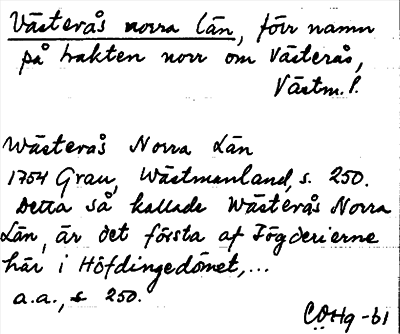 Västerås norra län, förr namn
på trakten norr om Västerås,
Västm. l.
Wästerås Norra Län
1754 Grau, Wästmanland, s. 250.
Detta så kallade Wästerås Norra
Län, är det första af Fögderierne
här i Höfdingedömet,...
a.a., s 250.